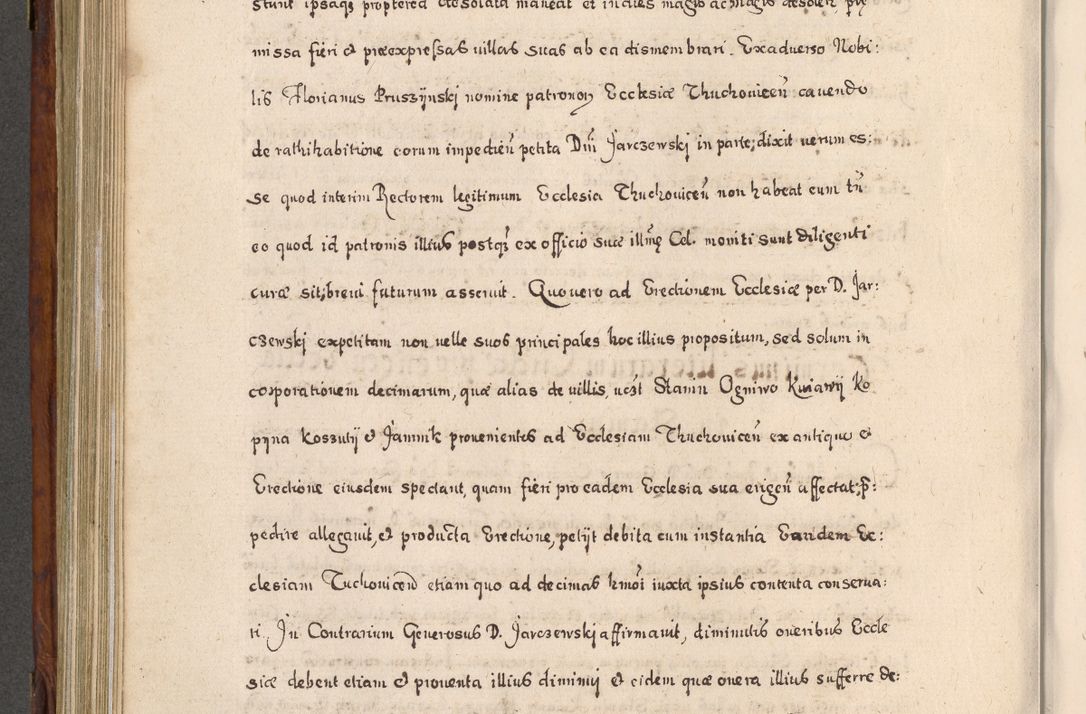 stunt ipsaqꝫ propterea desolata maneat et in dies magis ac magis desolet, prę
missa fieri et præexpressas villas suas ab ea dismembrari. Ex aduerso Nobi:
lis Florianus Pruszijnskj nomine patronoꝝ Ecclesiæ Thuchouiceñ cauendo
de rathihabitione eorum impedieñ petita Dñi Jarczewskj in parte; dixit uerum es:
se quod interim Rectorem legitimum Ecclesia Thuchouiceñ non habeat cum tñ
eo quod id patronis illius postqꝫ ex officio suæ illmę Cel. moniti sunt diligenti
curæ sit; breui futurum asseruit. Quo uero ad Erectionem Ecclesiæ per D. Jar:
czewskj expetitam non uelle suos principales hoc illius propositum, sed solum in
corporationem decimarum, quæ alias de uillis, uczt Stanin Ogniwo Kuiawij Ko
pijna Koszutij et Jamnik prouenientes ad Ecclesiam Thuchouiceñ ex antiquo et
Erectione eiusdem spectant, quam fieri pro eadem Ecclesia sua erigeñ affectat; p̄:
pedire allegauit, et producta Erectione, petijt debita cum instantia Eandem Ec:
clesiam Tuchouiceñ etiam quo ad decimas hmõi iuxta ipsius contenta conserua:
ri. Jn Contrarium Generosus D. Jarczewskj affirmauit, diminutis oneribus Eccle
siæ debent etiam et prouenta illius diminuj et eidem quæ onera illius sufferre de: